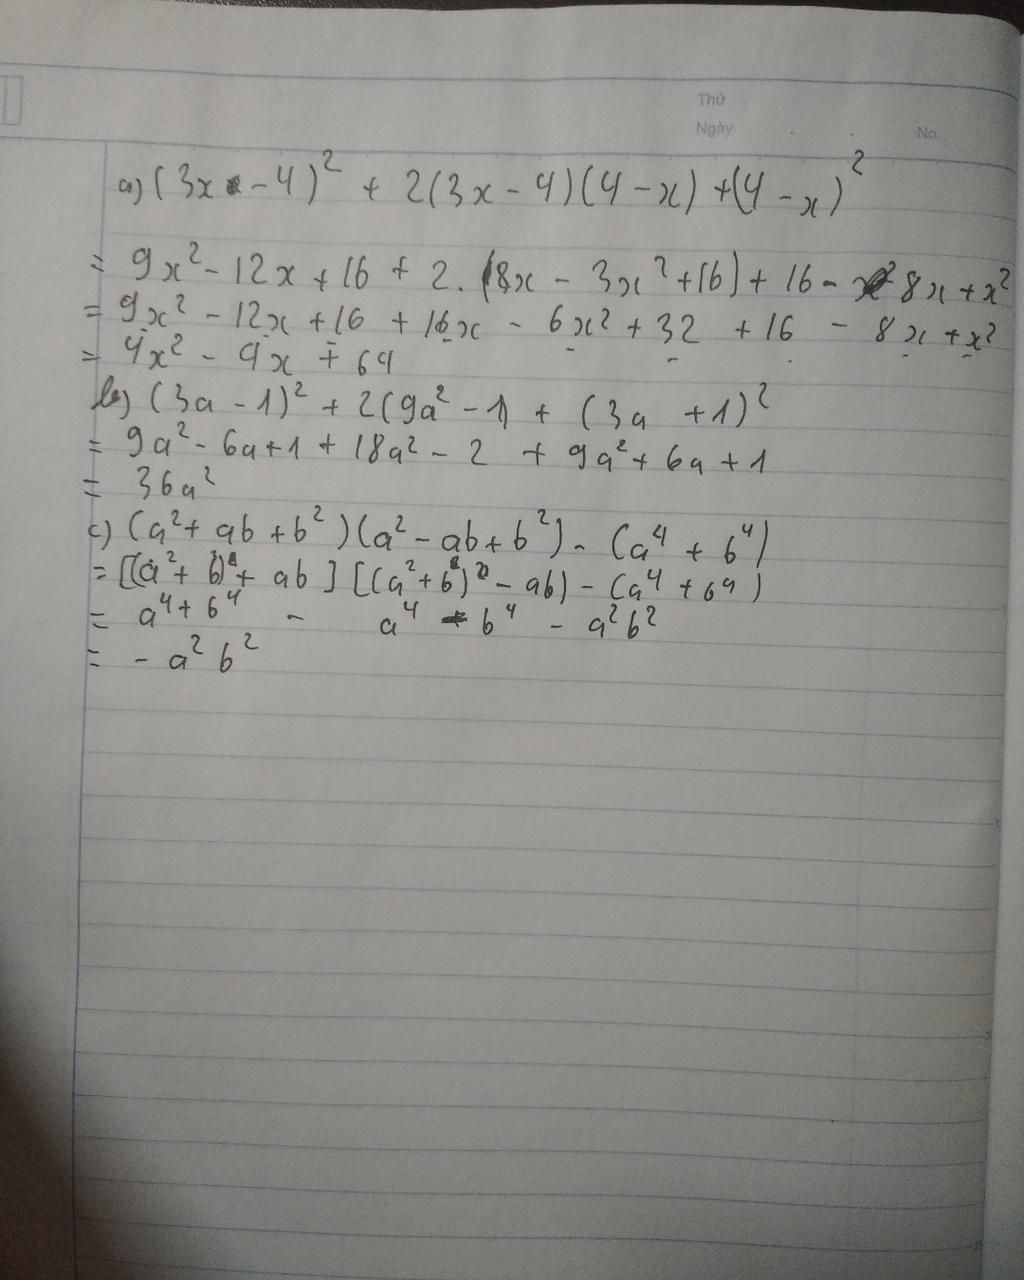 Thứ
Ngày
No.
a) (3x - 4)² + 2(3x - 4)(4 - x) + (4 - x)²
= 9x² - 12x + 16 + 2. (8x - 3x² + 16) + 16 - 8x + x²
= 9x² - 12x + 16 + 16x - 6x² + 32 + 16 - 8x + x²
= 4x² - 4x + 64
b) (3a - 1)² + 2(9a² - 1) + (3a + 1)²
= 9a² - 6a + 1 + 18a² - 2 + 9a² + 6a + 1
= 36a²
c) (a² + ab + b²)(a² - ab + b²) - (a⁴ + b⁴)
= [(a² + b)² + ab] [(a² + b²)² - ab) - (a⁴ + b⁴)
= a⁴ + b⁴ - a⁴ - b⁴ - a²b²
= - a² b²